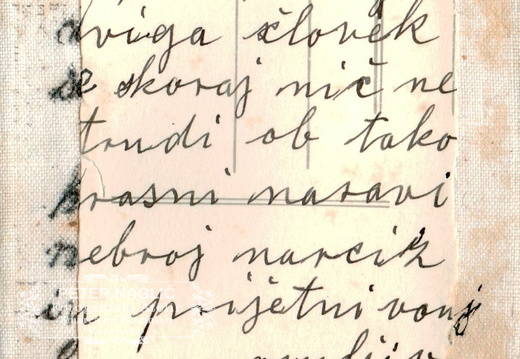 dviga človek
se skoraj nič ne
trudi ob tako
krasni naravi
nebroj narciz
in prijetni vonj